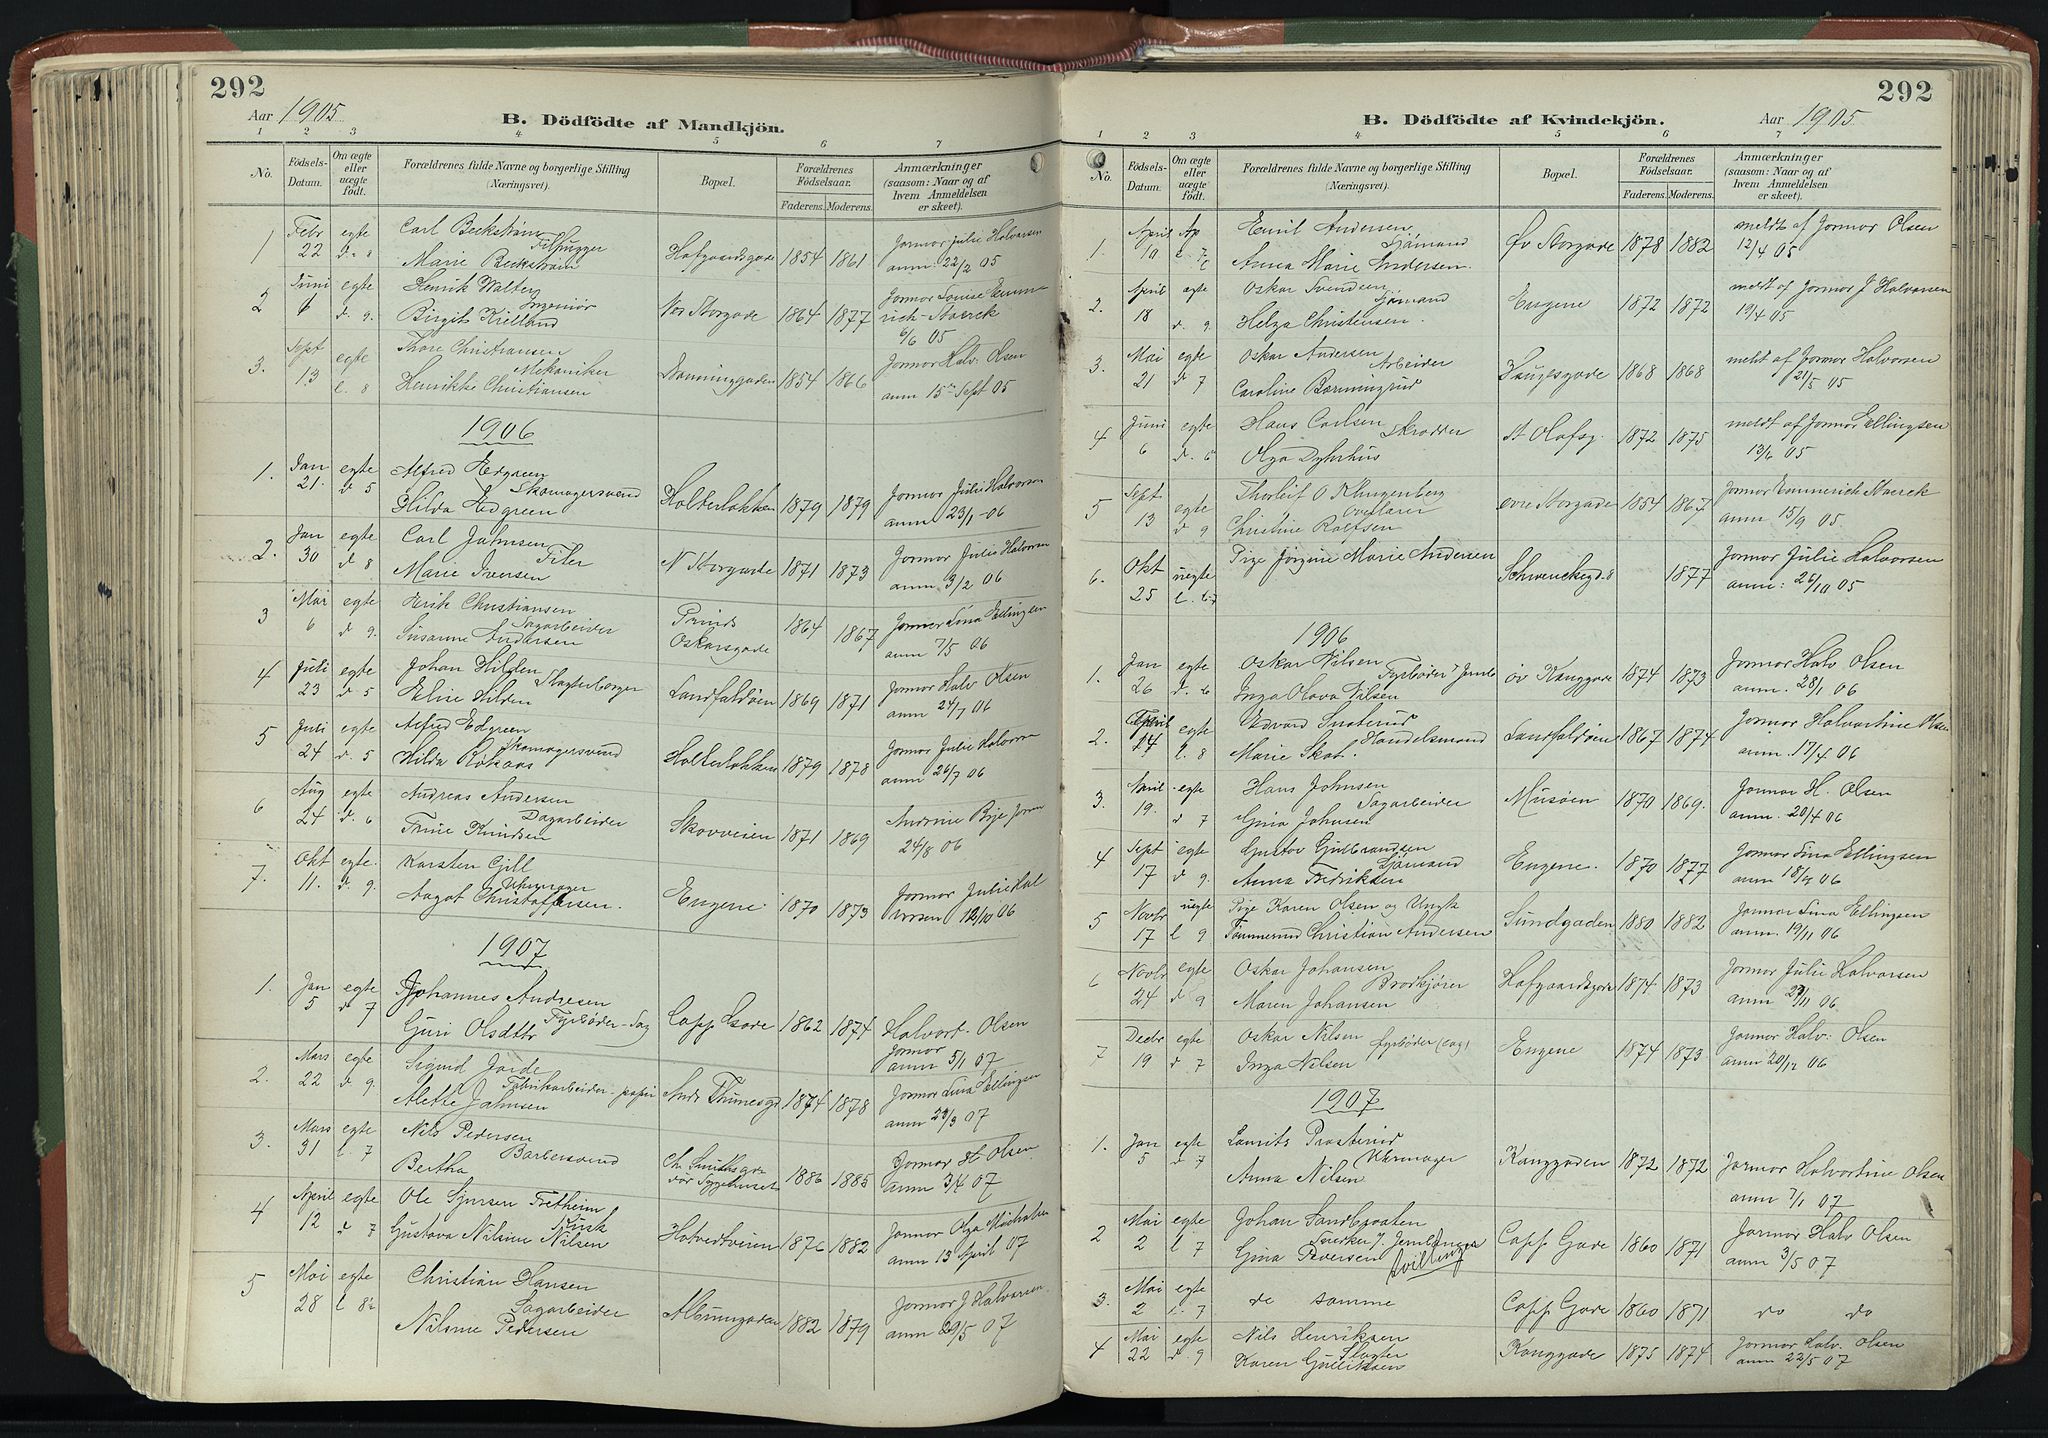 292
Aar 1905
B. Dödfödte af Mandkjön.
1 2 3 4 5 6 7
No. Födsels-Datum. Om ægte eller uægte födt. Forældrenes fulde Navne og borgerlige Stilling (Næringsvei). Bopæl. Forældrenes Födselsaar. Faderens. Moderens. Anmærkninger (saasom: Naar og af hvem Anmeldelsen er skeet).
1 Febr egte Carl Beckström Jormor Julie Halvorsen
22 Filhugger Hofgaardsgade 1854 1861
Marie Beckström anm. 22/2 05
2 Juni egte Henrik Walter Jormor Louise Emme-
Ingeniör
d. 9. Birgit Kielland Nor Storgade 1864 1877 rich-Stverck
6/6 05
3. Sept egte Thore Christiansen Jormor Halv. Olsen
13 Mekaniker 1854 1866
l. 8 Henrikke Christiansen anm 15 Sept 05
1906
1. Jan egte Alfred Edgreen
21. d 5 Skomagersvend Holterlökken 1879 1879 Jormor Julie Halvorsen
Hilda Edgreen anm 23/1-06
2. Jan egte Carl Johnsen Jormor Julie Halvorsen
30 d 8 Filer N Storgade 1871 1873
Marie Iversen anm 3/2 06
3 Mai egte Erik Christiansen Jormor Lina Ellingsen
6 d 9. Sagarbeider Prinds Oskarsgade 1864 1867
Susanne Andersen anm 7/5 06
4 Juli egte Johan Hilden Jormor Halv Olsen
23 d 5 Slagterborger Landfaldöen 1869 1871
Eline Hilden anm 24/7 06
5 Juli egte Alfred Edgreen Jormor Julie Halvorsen
24 d. 5 Skomagersvend Holterlökken 1879 1878
Hilda anm 26/7 06
6 Aug egte Andreas Andersen
24 d. 6 Dagarbeider Skovveien 1871 1869 Andrine Bye Jorm
Trine Knudsen 24/8 06
7. Okt egte. Karsten Gjill
11. d. 9. Uhrmager Engene 1870 1873 Jormor Julie Hal
Aagot Christoffersen. vorsen 12/10 06
1907
1. Jan egte Johannes Andresen
5 d 7 Fyrböder-Sag Copp Gade 1862 1874 Halvort. Olsen
Guri Olsdtr Jormor
anm 5/1 07
2. Mars egte Sigurd Jorde
22 d 9 Fabrikarbeider-papir Ands Thunesgd 1874 1878 Jormor Lina Ellingsen
Alette Johnsen anm 23/3 07
3. Mars egte Nils Pedersen
31 l. 7 Barbersvend Chr. Smithsgae 1886 1885 Jormor H Olsen
Bertha anm 3/4 07
4 April egte Ole Tretheim
12 d 7 Kusk Hotvedtveien 1876 1882 Jormor Olga
Gustava Nilsine Nilsen anm 13 April 07
5 Mai egte Christian Hansen
28 l 8½ Sagarbeider Albumgaden 1882 1879 Jormor J Halvorsen
Nilsine Pedersen anm 29/5 07
292
B. Dödfödte af Kvindekjön.
Aar 1905
1 2 3 4 5 6 7
No. Födsels-Datum. Om ægte eller uægte födt. Forældrenes fulde Navne og borgerlige Stilling (Næringsvei). Bopæl. Forældrenes Födselsaar. Faderens. Moderens. Anmærkninger (saasom: Naar og af hvem Anmeldelsen er skeet).
1. April Emil Andersen meldt af Jormor Olsen
10 l. 7 Sjömand Öv Storgade 1878 1882
Anna Marie Andersen. 12/4 05
2. April egte Oskar Svendsen meldt af Jormor J Halvorsen
18 d 9. Sjömand Engene 1872 1872
Helga Christensen. 19/4 05
3. Mai egte Oskar Andersen meldt af Jormor Halvorsen
21 d 7 Arbeider Haugesgade 1868 1868
Caroline 21/5 05
4 Juni egte Hans Carlsen meldt af Jormor Ellingsen
6 d. 6 Skrædder St Olafsg. 1872 1875
Olga Dyhrhus 13/6 05
5 Sept egte Thorleif O Klingenberg Jormor Emmerich Stverck
13 d 9 Overlærer övre Storgade 1854 1867
Christine Rolfsen anm 15/9 05.
6. Okt uegte Pige Jörgine Marie Andersen Jormor Julie Halvorsen
25 l. Schwenckegd. 8 1877 anm: 26/10 05
1906
1. Jan egte Oskar Nilsen Jormor Halv Olsen
26 d. 6 Fyrböder öv Konggade 1874 1873
Inga Olava Nilsen anm. 28/1 06
2. April egte Edvard Jormor Halvortine Olsen
14 l. 8 Handelsmand Landfaldöen 1867 1874
Marie Skot. anm. 17/4 06
3. April egte Hans Johnsen Jormor H. Olsen
19. d 7 Sagarbeider Musöen 1870 1869.
Gina Johnsen anm. 20/4 06
4 Sept egte Gustav Gulbrandsen Jormor Lina Ellingsen
17 d 9. Sjömand Engene. 1870 1877
Anna Fredriksen anm 18/9 06
5 Novbr uegte Pige Karen Olsen og Ungk Jormor Lina Ellingsen
17 l 9 Tömmermd Christian Andersen Sundgaden 1880 1882 anm. 19/11 06
6 Novbr egte Oskar Johansen Jormor Julie Halvorsen
24 d 9 Brödkjörer Hofgaardsgade 1874 1873
Maren Johansen anm 29/11 06
7 Decbr egte Oskar Nilsen Jormor Halv: Olsen
19 d 7 fyrböder (sag) Engene 1874 1873
Inga Nilsen anm 20/12 06
1907
1. Jan egte Laurits Prosterud
5 d 7 Uhrmager Konggaden 1872 1872 Jormor Halvortine Olsen
Anna Nilsen anm 7/1 07
2 Mai egte Johan Sandbraaten Jormor Halv Olsen
2 l 7 Copp. Gade 1860 1871
Gina Pedersen tvillinger anm 3/5 07
3. Mai egte
2 l. 7 de samme Copp Gade 1860 1871 do do
4 Mai egte Nils Henriksen Jormor Halv. Olsen
22 d. 9 Slagter Konggade 1875 1874
Karen Gulliksen anm 22/5 07